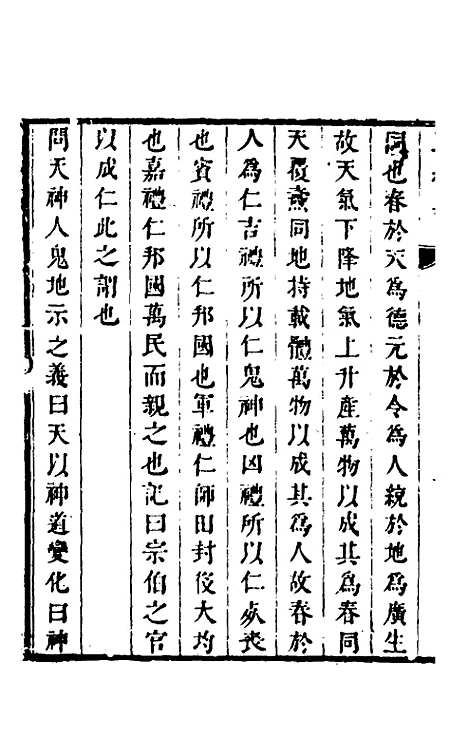 同也春於天為德元於令為人統於地為廣生
故天氣下降地氣上升產萬物以成其為春同
天覆燾同地持載體萬物以成其為人故春於
人為仁吉禮所以仁鬼神也凶禮所以仁死喪
也賓禮所以仁邦國也軍禮仁師田封役大均
也嘉禮仁邦國萬民而親之也記曰宗伯之官
以成仁此之謂也
問天神人鬼地示之義曰天以神道變化曰神